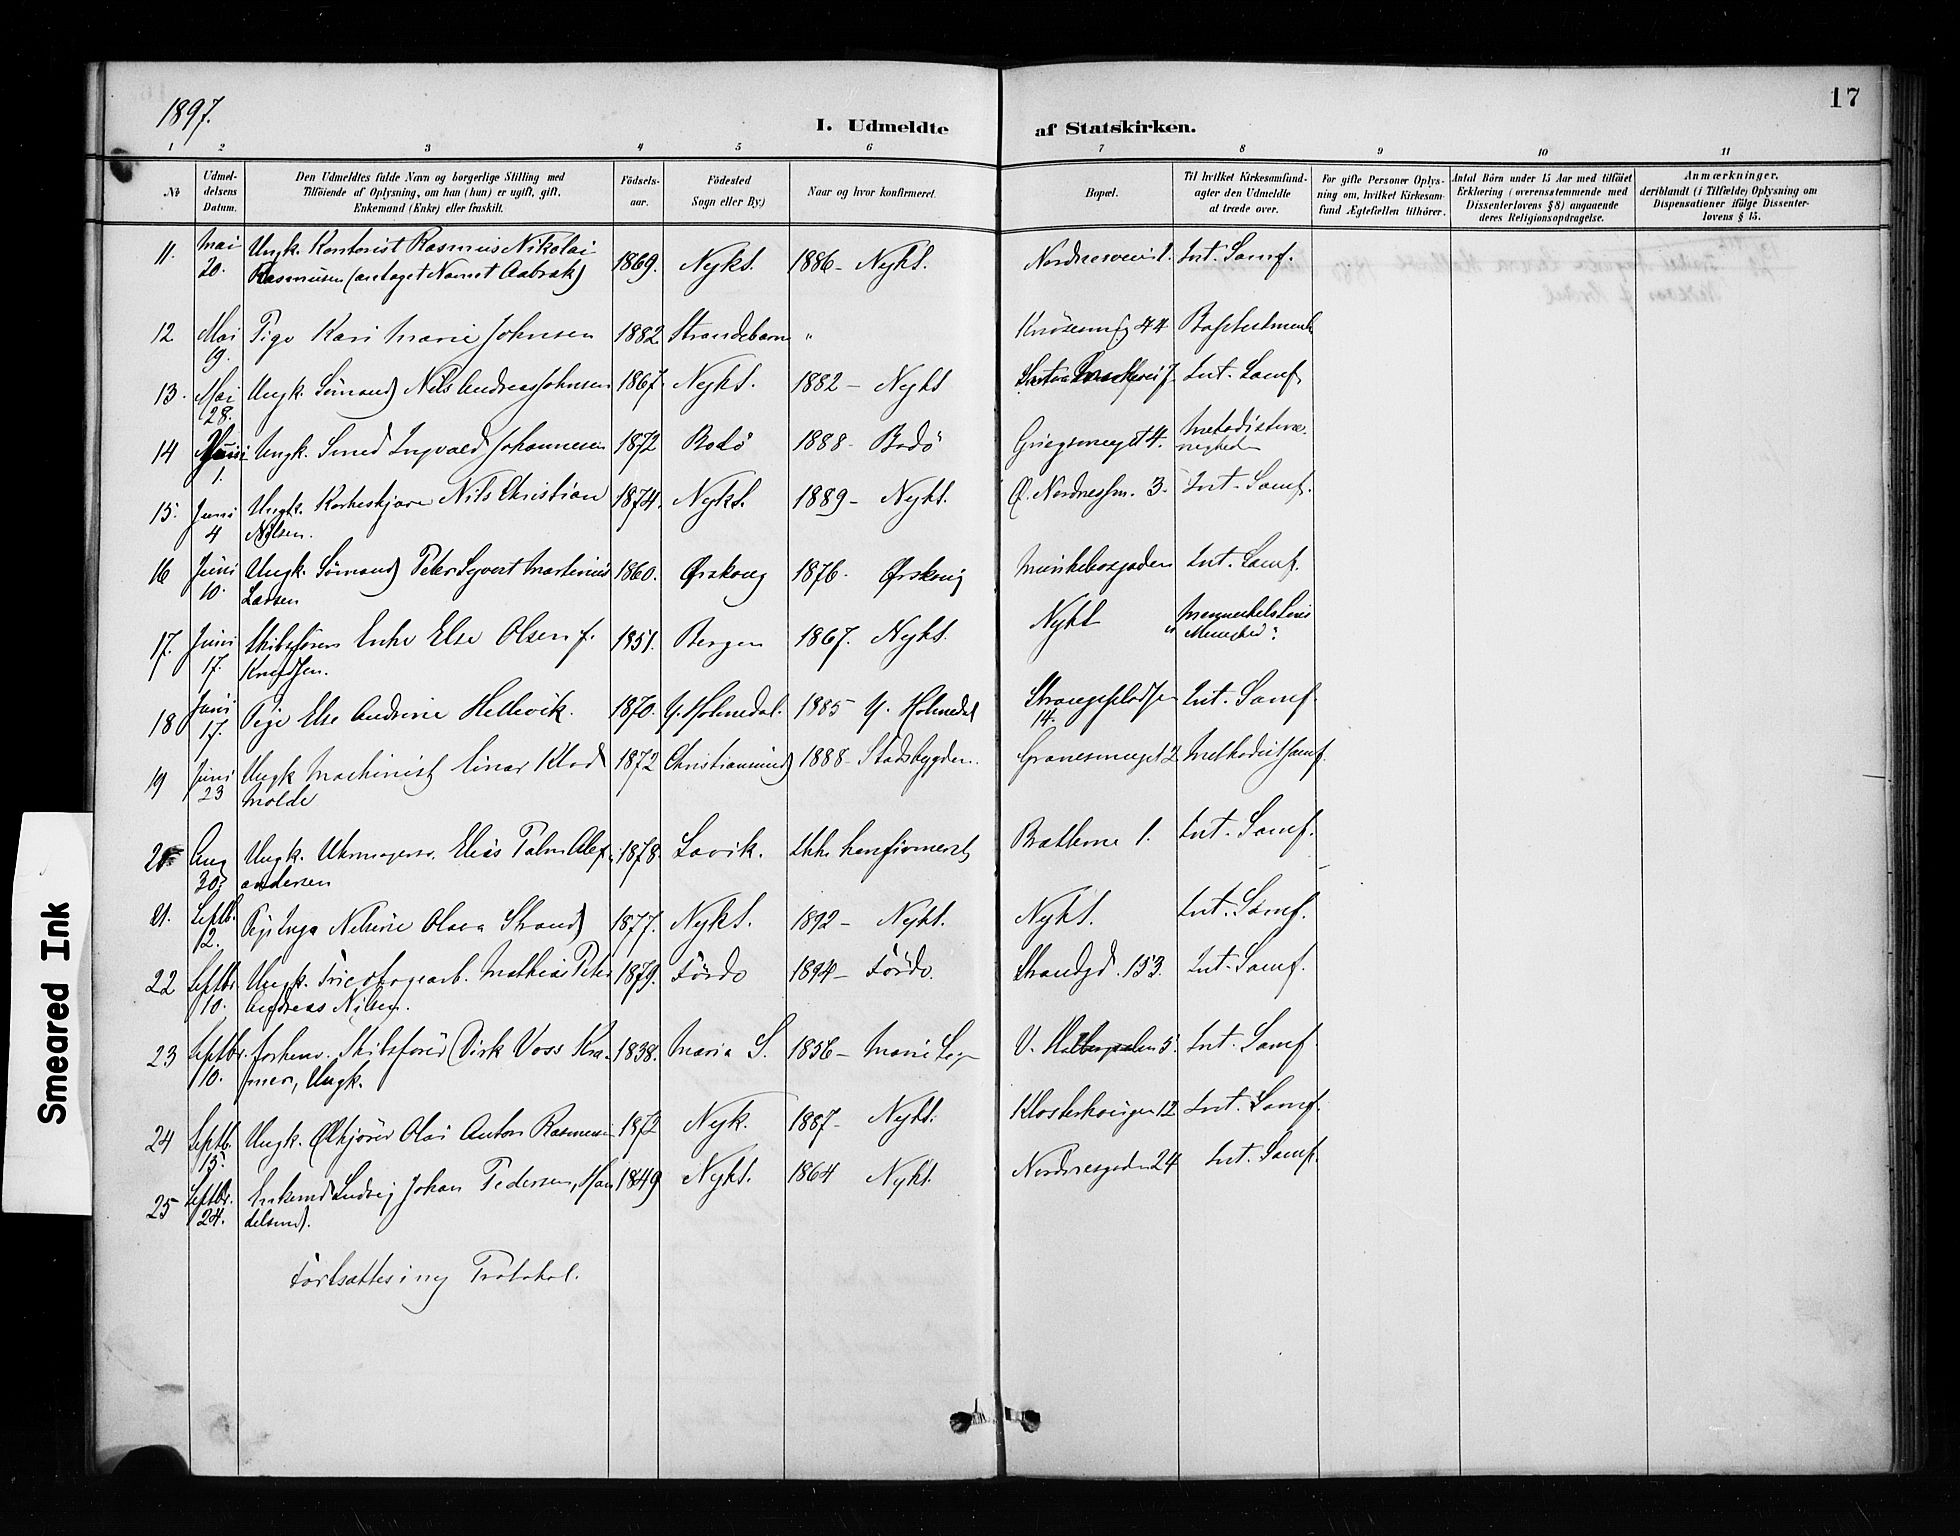 1897.
17
I. Udmeldte af Statskirken.
1 2 3 4 5 6 7 8 9 10 11
No
Udmeldelsens Datum.
Den Udmeldtes fulde Navn og borgerlige Stilling med
Tilföiende af Oplysning, om han (hun) er ugift, gift,
Enkemand (Enke) eller fraskilt.
Födselsaar.
Födested
Sogn eller By.)
Naar og hvor konfirmeret.
Bopæl.
Til hvilket Kirkesamfund-
agter den Udmeldte
at træde over.
For gifte Personer Oplys-
ning om, hvilket Kirkesam-
fund Ægtefællen tilhörer.
Antal Börn under 15 Aar med tilföiet
Erklæring (overensstemmende med
Dissenterlovens § 8) angaaende
deres Religionsopdragelse.
Anmærkninger,
deriblandt (i Tilfælde) Oplysning om
Dispensationer ifölge Dissenter-
lovens § 15.
11. Mai 20. Ungk. Kontorist Rasmus Nikolai 1869. Nykt. 1886 - Nykt. Nordnesvei 1. Int. Samf.
Rasmusen (antaget Navnet Aabrek)
12 Mai 19. Pige Kari Marie Johnsen 1882 Strandebarm " 44
13. Mai 28. Ungk. Sömand Nils Andreas Johnsen 1867. Nykt. 1882 - Nykt Int. Samf.
14 Juni 1. Ungk. Smed Ingvald Johannesen 1872 Bodö 1888 - Bodö Griegsmuget 4. Metodistme-
nighed
15. Juni 4 Ungk. Korkeskjærer Nils Christian 1874. Nykt. 1889 - Nykt. Ø. Nordnessm. 3. Int. Samf.
Nilsen.
16 Juni 10. Ungk. Sömand Peter Syvert Martinus 1860. Ørskoug 1876. Ørskoug Munkebosgaden Int. Samf.
Larsen
17. Juni 17. Skibsförers Enke Else Olsen f. 1851. Bergen 1867. Nykt. Nykt
Knudsen.
18 Juni 17. Pige Else Andrine Hellevik. 1870. Y. Holmedal. 1885 Y. Holmedal Strangepladsen Int. Samf.
14.
19 Juni 23 Ungk Machinist Einar Klod 1872 Christiansund 1888 - Stadsbygden. Granesmuget 2 Methodistsamf.
Molde
20 Aug 30. Ungk. Uhrmagersv. Elias Palm Alex- 1878. Lavik. Ikke konfirmeret Bratterne 1. Int. Samf.
andersen
21. Septb. 12. Pige Inga Nelsine Olava Strand 1877. Nykt. 1892 - Nykt. Nykt. Int. Samf.
22 Septbr. 10. Ungk. Tricotagearb. Mathias Peter 1879. Förde 1894 - Förde. Strandgd. 153. Int. Samf.
Andreas Nilsen.
23 Septbr. 10. forhenv. Skibsförer Dirk Voss Kra- 1838. Maria S. 1856 - Marie Sogn V. 5. Int. Samf.
mer, Ungk.
24 Septb. 15. Ungk. Ølkjörer Olai Anton Rasmusen 1872 Nyk. 1887 - Nykt. Klosterhaugen 12 Int. Samf.
25 Septbr. 24. Enkemd Ludvig Johan Pedersen, Han- 1849 Nykt. 1864 Nykt. Nordnesgaden 24 Int. Samf.
delsmd.
Fortsættes i ny Protokol.
Smeared Ink